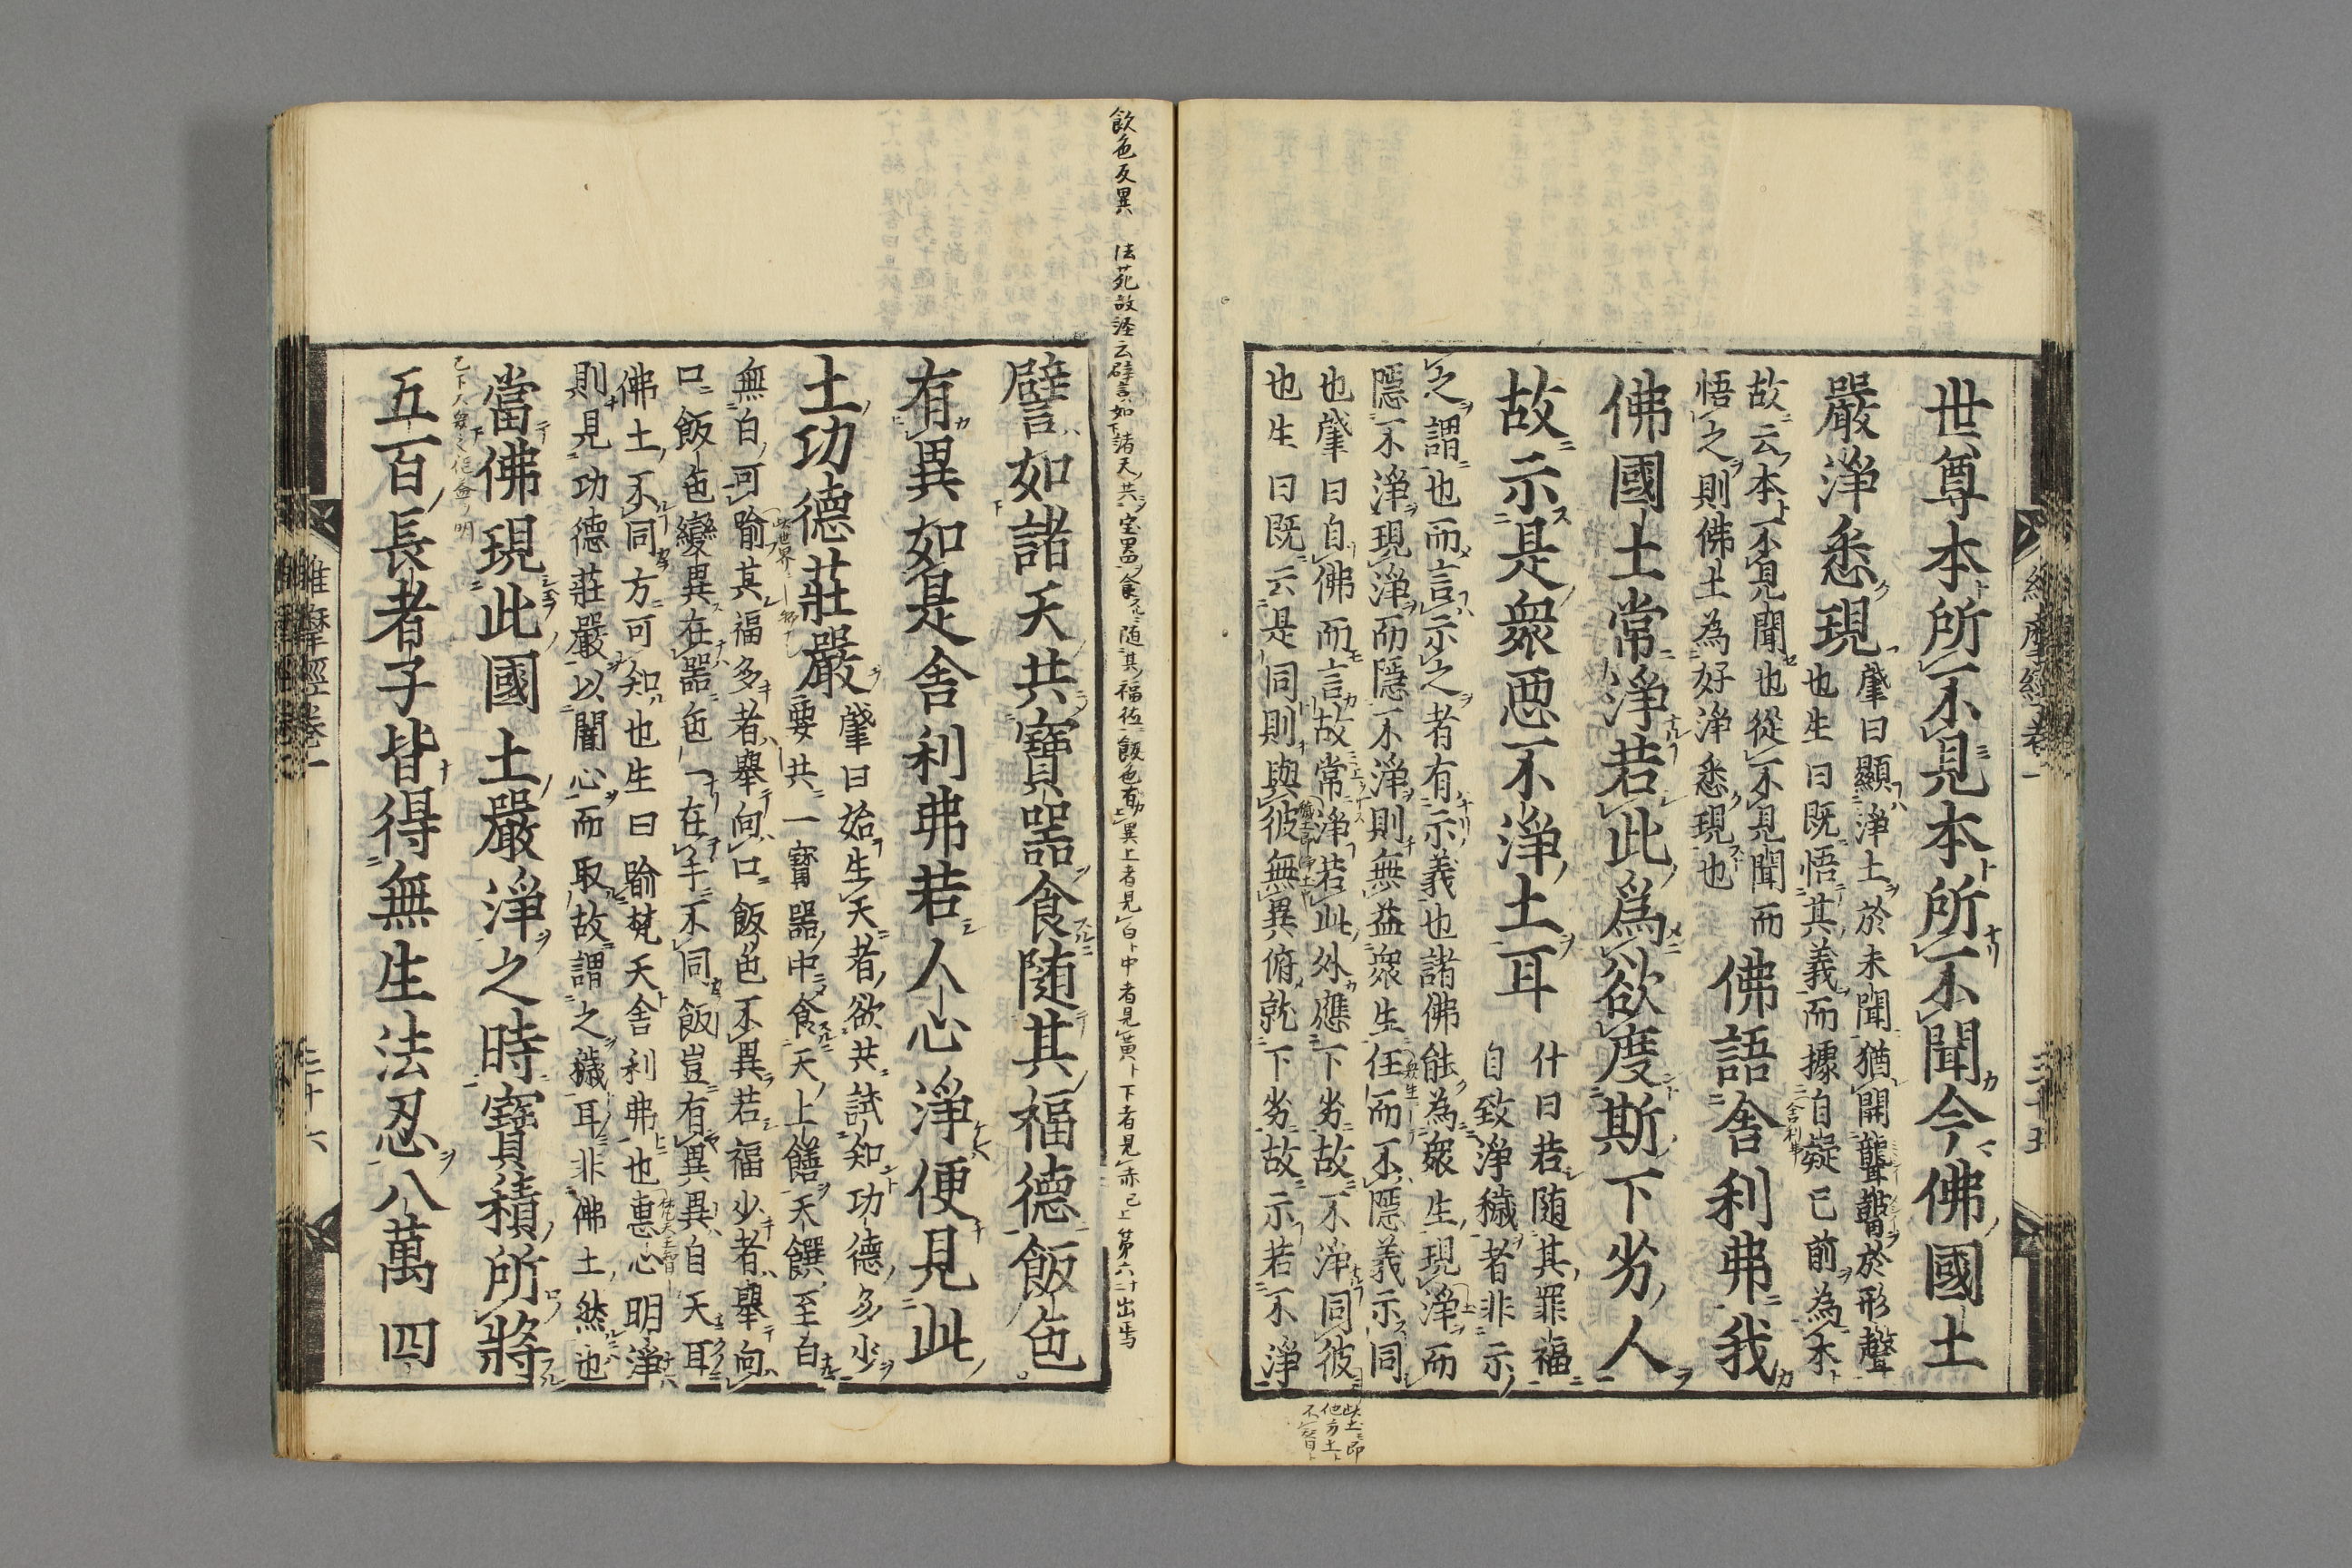 世尊本所不見本所不聞今佛國土
嚴淨悉現
肇曰顯淨土於未聞猶開聾瞽於形聲
也生曰既悟其義而據自疑已前為不
故云本不見聞也從不見聞而
悟之則佛土為好淨悉現也
佛語舍利弗我
佛國土常淨若此為欲度斯下劣人
故示是衆惡不淨土耳
什曰若隨其罪福
自致淨穢者非示
之謂也而言示之者有示義也諸佛能為衆生現淨而
隱不淨現淨而隱不淨則無益衆生任而不隱義示同
也肇曰自佛而言故常淨若此外應下劣故不淨同彼
也生曰既云是同則與彼無異俯就下劣故示若不淨
飲色反異 法苑故經云譬如諸天共宝器食随其福徳飯色有異上者見白中者見黄下者見赤已上第六十出焉
譬如諸天共寶器食隨其福德飯色
有異如是舍利弗若人心淨便見此
土功德莊嚴
肇曰始生天者欲共試知功德多少
要共一寶器中食天上饍天饌至白
無白可喻其福多者舉向口飯色不異若福少者舉向
口飯色變異在器色一在手不同飯豈有異異自天耳
佛土不同方可知也生曰喻梵天舍利弗也惠心明淨
則見功德莊嚴以闇心而取故謂之穢耳非佛土然也
當佛現此國土嚴淨之時寶積所將
五百長者子皆得無生法忍八萬四
維摩經卷一
三十六